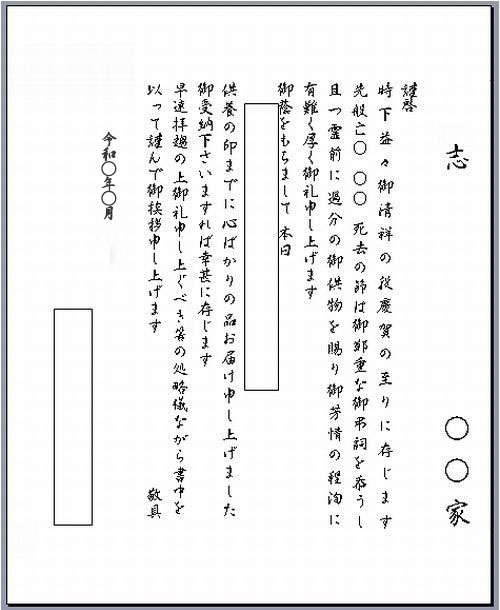 志　〇〇家
謹啓
時下益々御清祥の段慶賀の至りに存じます
先般亡〇〇〇死去の節は御鄭重な御弔詞を忝うし
且つ霊前に過分の御供物を賜り御芳情の程洵に
有難く厚く御礼申し上げます
御蔭をもちまして本日
供養の印までに心ばかりの品お届け申し上げました
御受納下さいますれば幸甚に存じます
早速拝趨の上御礼申し上ぐべき筈の処略儀ながら書中を
以って謹んで御挨拶申し上げます
敬具
令和〇年〇月